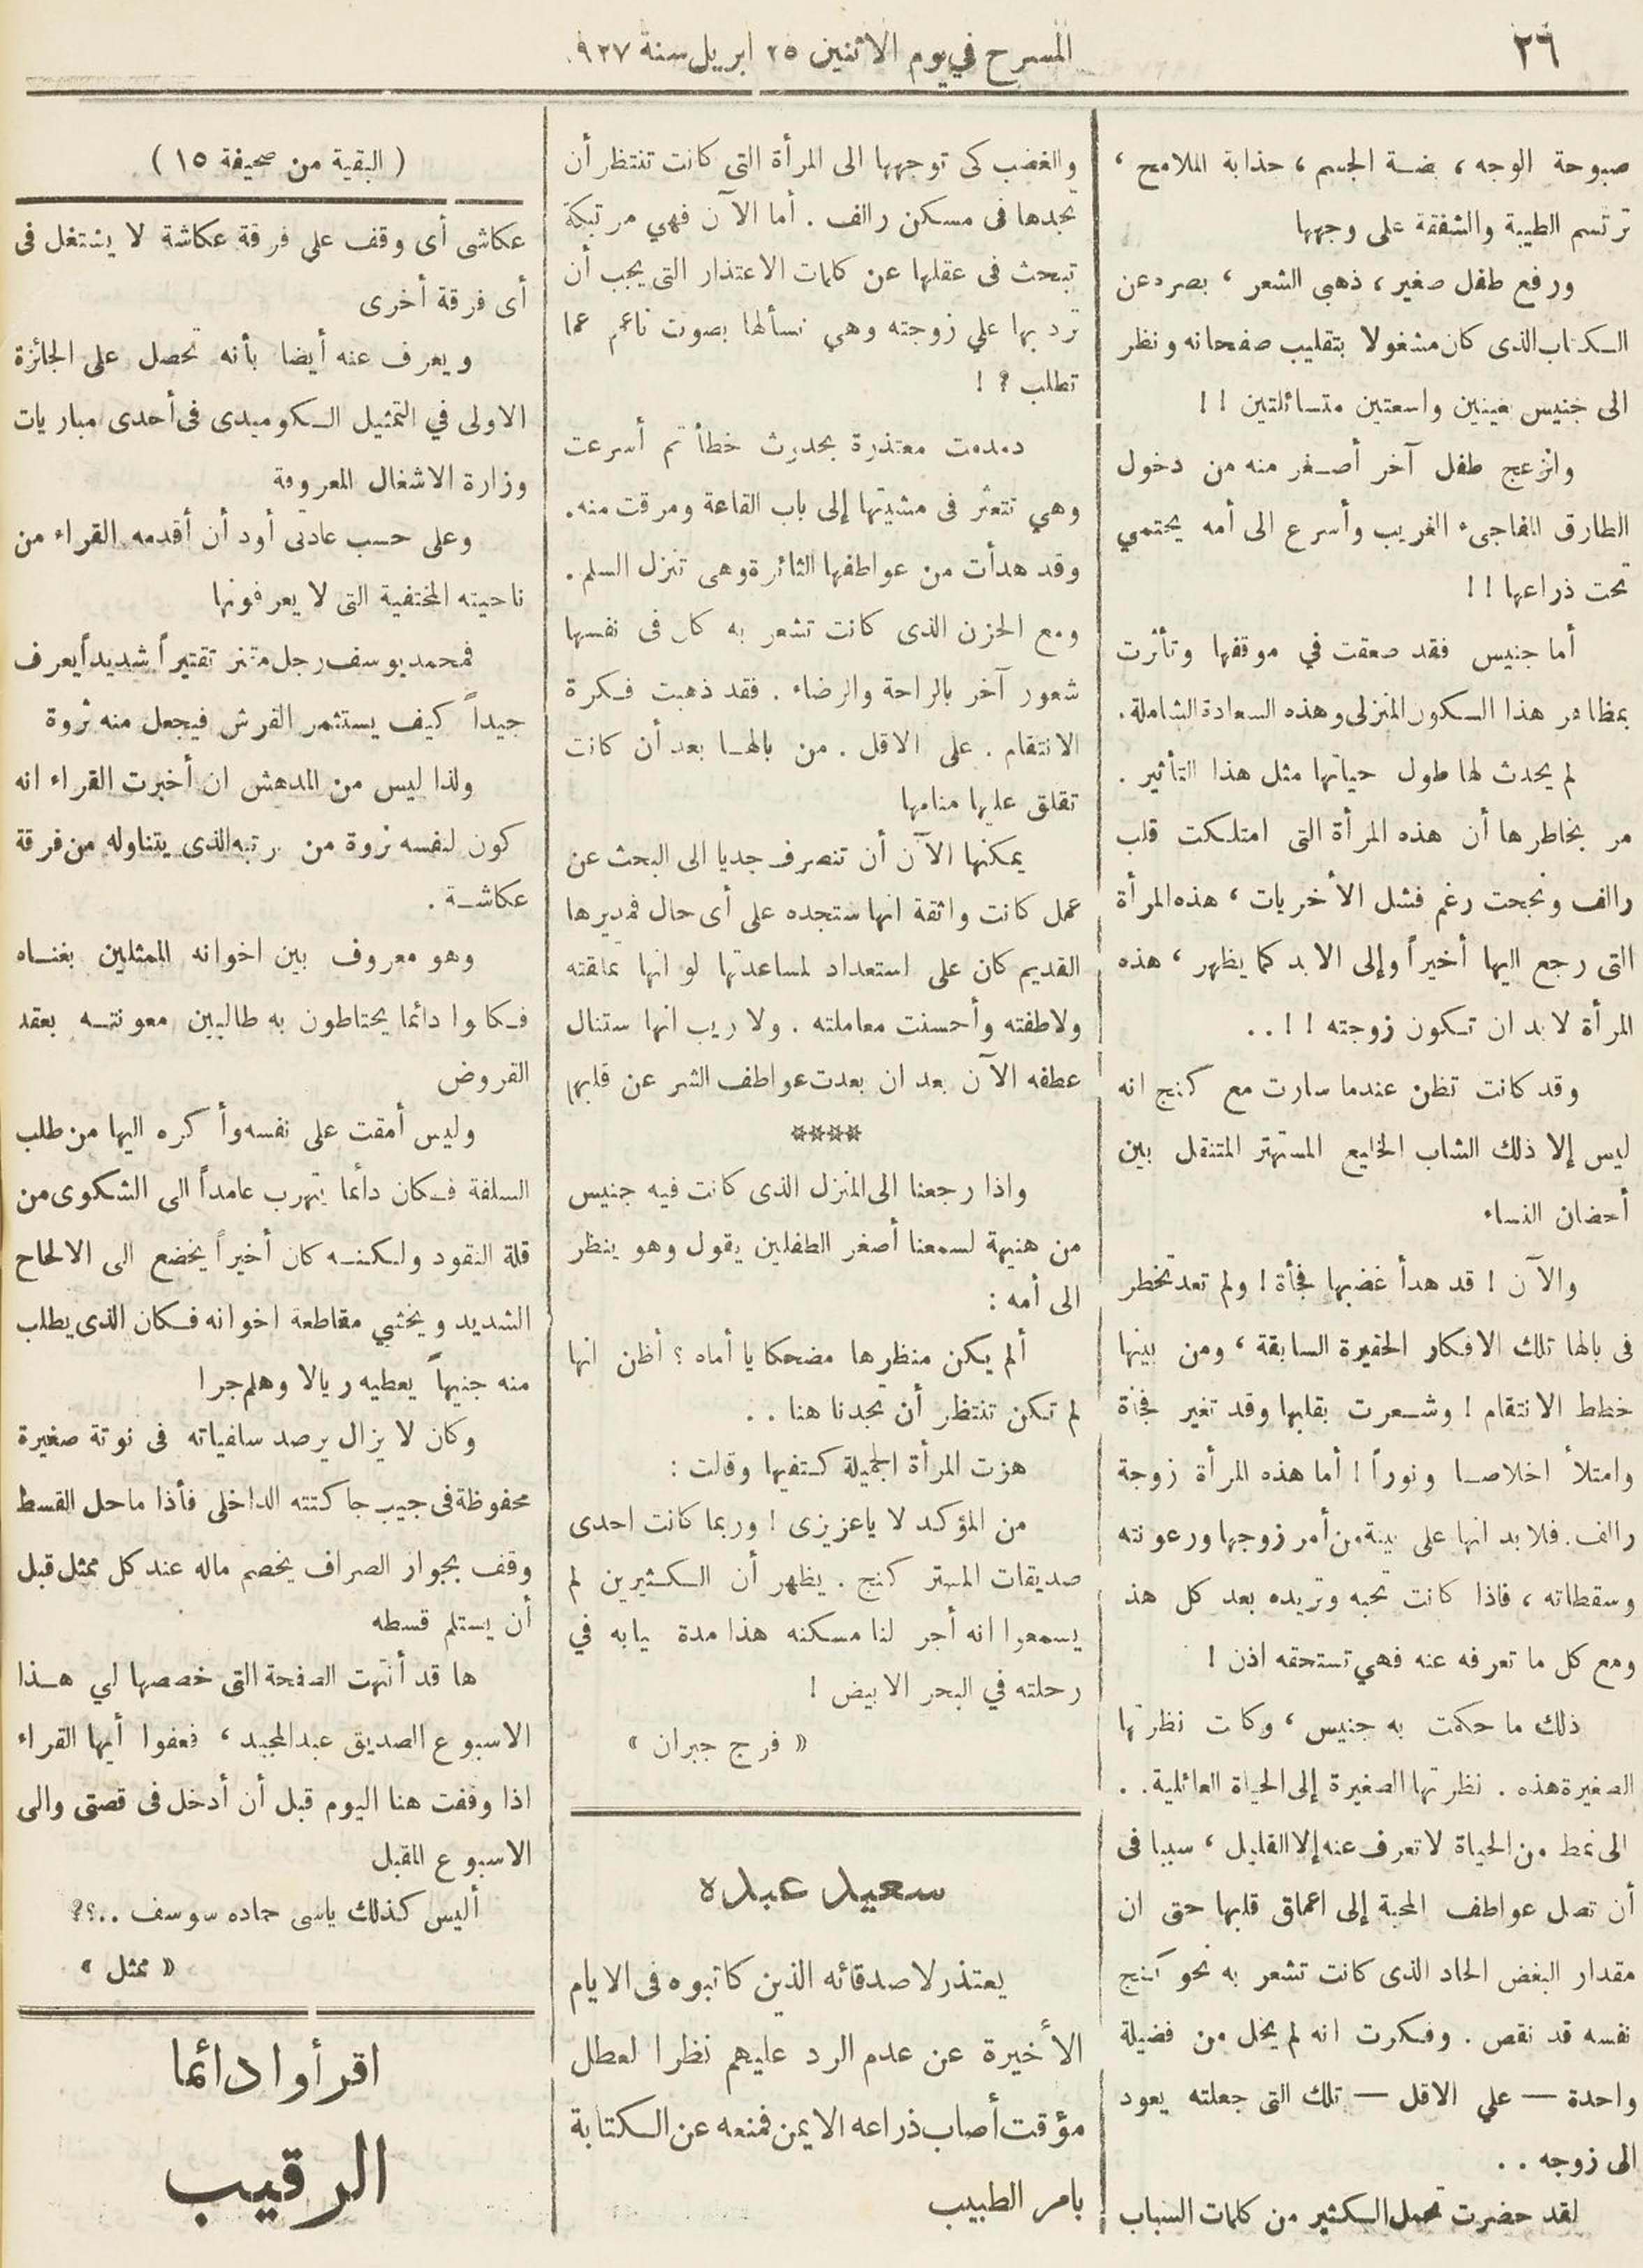 ٢٦
المسرح في يوم الاثنين ٢٥ ابريل سنة ٩٢٧.
صبوحة الوجه ، بضة الجسم ، جذابة الملامح ،
ترتسم الطيبة والشفقة على وجهها
ورفع طفل صغير ، ذهبي الشعر ، بصره عن
الكتاب الذى كان مشغولا بتقليب صفحاته ونظر
الى جنيس بعينين واسعتين متسائلتين ! !
وانزعج طفل آخر أصغر منه من دخول
الطارق المفاجىء الغريب وأسرع الى أمه يحتمي
تحت ذراعها ! !
أما جنيس فقد صعقت في موقفها وتأثرت
بمظاهر هذا السكون المنزلى وهذه السعادة الشاملة .
لم يحدث لها طول حياتها مثل هذا التأثير .
مر بخاطرها أن هذه المرأة التى امتلكت قلب
رالف ونجحت رغم فشل الأخريات ، هذه المرأة
التى رجع اليها أخيراً وإلى الابد كما يظهر ، هذه
المرأة لا بد ان تكون زوجته ! ! . .
وقد كانت تظن عندما سارت مع كنج انه
ليس إلا ذلك الشاب الخليع المستهتر المتنقل بين
أحضان النساء
والآن ! قد هدأ غضبها فجأة ! ولم تعد تخطر
فى بالها تلك الافكار الحقيرة السابقة ، ومن بينها
خطط الانتقام ! وشعرت بقلبها وقد تغير فجأة
وامتلأ اخلاصا ونوراً ! أما هذه المرأة زوجة
رالف . فلا بد انها على بينة من أمر زوجها ورعونته
وسقطاته ، فاذا كانت تحبه وتريده بعد كل هذ
ومع كل ما تعرفه عنه فهي تستحقه اذن !
ذلك ما حكمت به جنيس ، وكانت نظرتها
الصغيرة هذه . نظرتها الصغيرة إلى الحياة العائلية . .
الى نمط من الحياة لا تعرف عنه إلا القليل ، سببا فى
أن تصل عواطف المحبة إلى اعماق قلبها حتى ان
مقدار البغض الحاد الذى كانت تشعر به نحو كنج
نفسه قد نقص . وفكرت انه لم يخل من فضيلة
واحدة — علي الاقل — تلك التى جعلته يعود
الى زوجه . .
لقد حضرت تحمل الكثير من كلمات السباب
والغضب كى توجهها الى المرأة التى كانت تنتظر أن
تجدها فى مسكن رالف . أما الآن فهي مرتبكة
تبحث فى عقلها عن كلمات الاعتذار التى يجب أن
ترد بها علي زوجته وهي تسألها بصوت ناعم عما
تطلب ? !
دمدمت معتذرة بحدوث خطأ ثم أسرعت
وهي تتعثر فى مشيتها إلى باب القاعة ومرقت منه .
وقد هدأت من عواطفها الثائرة وهى تنزل السلم .
ومع الحزن الذى كانت تشعر به كان فى نفسها
شعور آخر بالراحة والرضاء . فقد ذهبت فكرة
الانتقام . على الاقل . من بالها بعد أن كانت
تقلق عليها منامها
يمكنها الآن أن تنصرف جديا الى البحث عن
عمل كانت واثقة انها ستجده على أى حال فمديرها
القديم كان على استعداد لمساعدتها لو انها تملقته
ولاطفته وأحسنت معاملته . ولا ريب انها ستنال
عطفه الآن بعد ان بعدت عواطف الشر عن قلبها
****
واذا رجعنا الى المنزل الذى كانت فيه جنيس
من هنيهة لسمعنا أصغر الطفلين يقول وهو ينظر
الى أمه :
ألم يكن منظرها مضحكا يا أماه ؟ أظن انها
لم تكن تنتظر أن تجدنا هنا . .
هزت المرأة الجميلة كتفيها وقالت :
من المؤكد لا ياعزيزى ! وربما كانت احدى
صديقات المستر كنج . يظهر أن الكثيرين لم
يسمعوا انه أجر لنا مسكنه هذا مدة غيابه في
رحلته في البحر الابيض !
« فرج جبران »
سعيد عبده
يعتذر لاصدقائه الذين كاتبوه فى الايام
الأخيرة عن عدم الرد عليهم نظرا لعطل
مؤقت أصاب ذراعه الايمن فمنعه عن الكتابة
بامر الطبيب
( البقية من صحيفة ١٥ )
عكاشى أى وقف على فرقة عكاشة لا يشتغل فى
أى فرقة أخرى
ويعرف عنه أيضا بأنه تحصل على الجائزة
الاولى في التمثيل الكوميدى فى أحدى مباريات
وزارة الاشغال المعروفة
وعلى حسب عادتى أود أن أقدمه القراء من
ناحيته المختفية التى لا يعرفونها
فمحمد يوسف رجل مقتر تقتيراً شديداً يعرف
جيداً كيف يستثمر القرش فيجعل منه ثروة
ولذا ليس من المدهش ان أخبرت القراء انه
كون لنفسه ثروة من مرتبه الذى يتناوله من فرقة
عكاشة .
وهو معروف بين اخوانه الممثلين بغناه
فكانوا دائما يحتاطون به طالبين معونته بعقد
القروض
وليس أمقت على نفسه وأكره اليها من طلب
السلفة فكان دائما يتهرب عامداً الى الشكوى من
قلة النقود ولكنه كان أخيراً يخضع الى الالحاح
الشديد ويخشي مقاطعة اخوانه فكان الذى يطلب
منه جنيهاً يعطيه ريالا وهلم جرا
وكان لا يزال يرصد سلفياته فى نوتة صغيرة
محفوظة فى جيب جاكتته الداخلى فأذا ما حل القسط
وقف بجوار الصراف يخصم ماله عند كل ممثل قبل
أن يستلم قسطه
ها قد أنتهت الصفحة التى خصصها لي هذا
الاسبوع الصديق عبد المجيد ، فعفوا أيها القراء
اذا وقفت هنا اليوم قبل أن أدخل فى قصتى والى
الاسبوع المقبل
أليس كذلك ياسى حماده سوسف ..؟?
« ممثل »
اقرأوا دائما
الرقيب